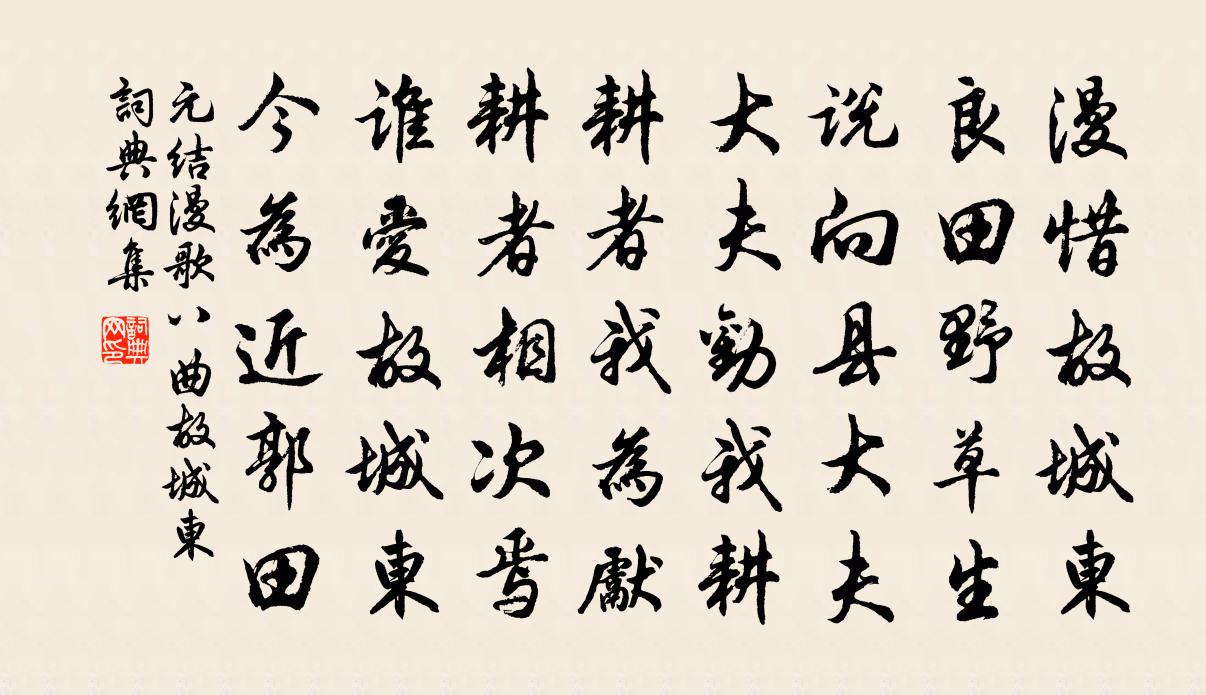 漫惜故城東
良田野草生
说向县大夫
大夫勸我耕
耕者我為獻
耕者相次焉
谁愛故城東
今為近郭田
元结漫歌八曲故城東
詞典網集
詞典网印